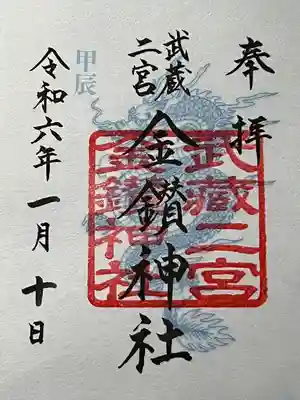 奉拝
武蔵
二宮
金鑚神社
武蔵二宮
金鑚神社
甲辰
令和六年一月十日